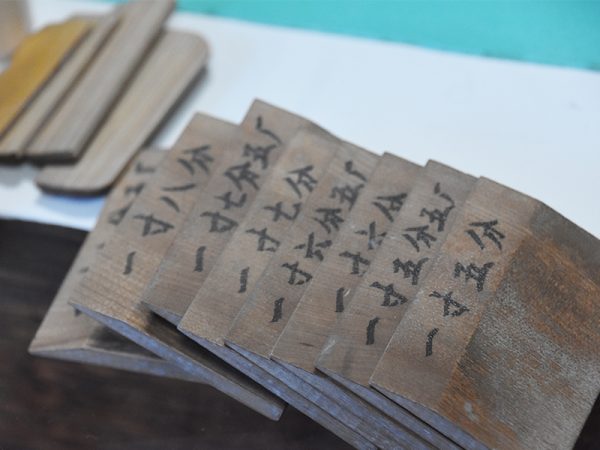 五厂
一寸八分
一寸七分五厂
一寸七分
一寸六分五厂
一寸六分
一寸五分五厂
一寸五分